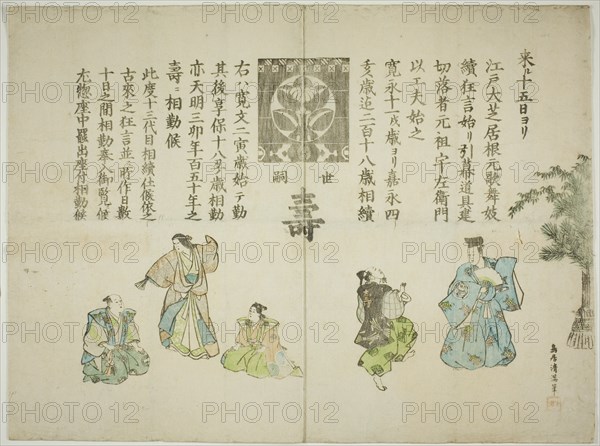 来ル十五日ヨリ
江戸大芝居根元歌舞妓
續狂言始リ引幕道具建
切落者元祖宇左衛門
以工夫始之
寛永十一戌歳ヨリ嘉永四
亥歳迄二百十八歳相續
世嗣
壽
右ハ寛文二寅歳始テ勤
其後享保十八丑歳相勤
亦天明三卯年百五十年之
壽ニ相勤候
此度十三代目相續仕候依之
古來之狂言並ニ新作日數
十日之間相勤奉入御覧候
尤惣座中罷出座付相勤候
鳥居清満筆
PHOTO12